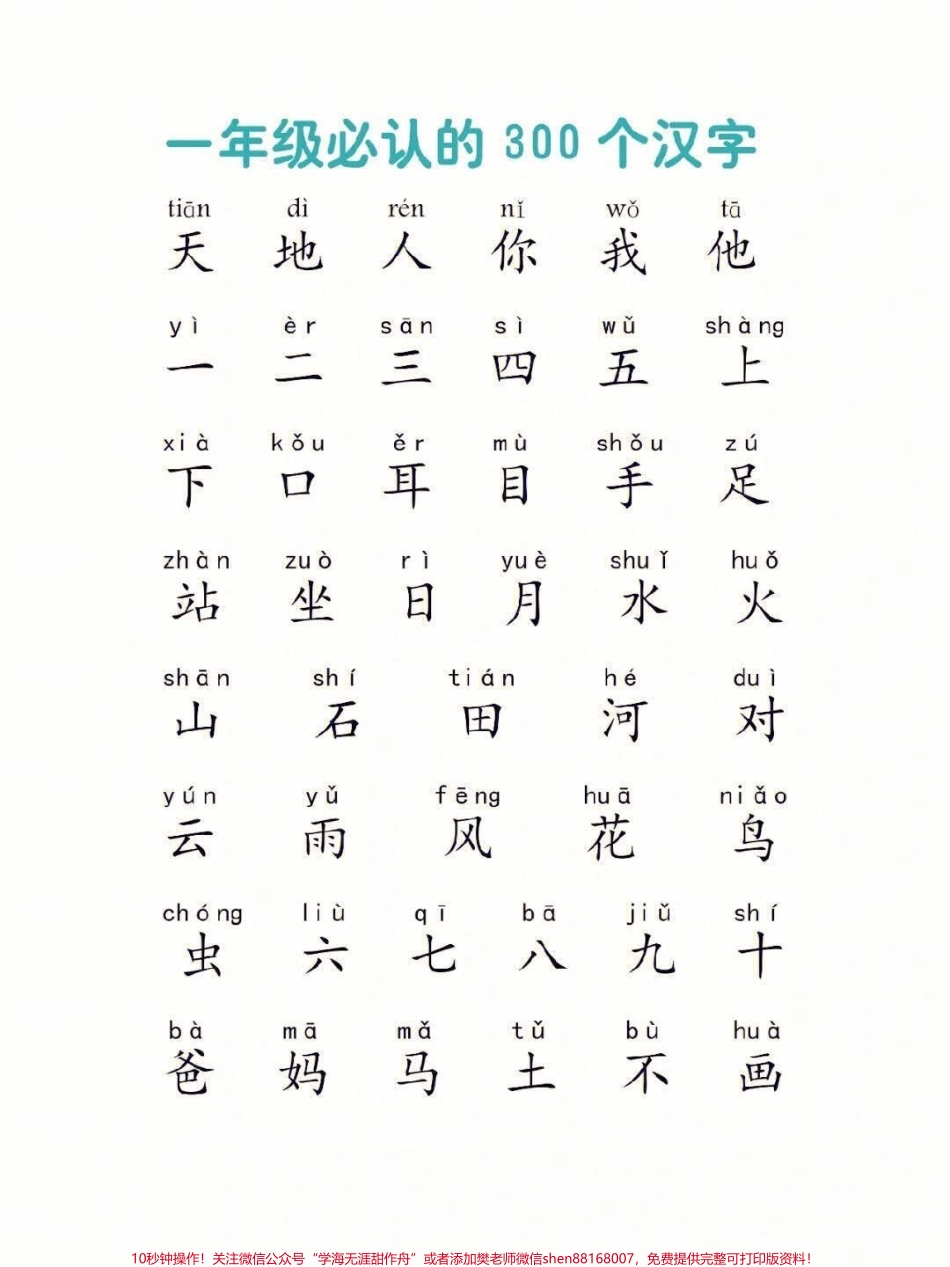 一年级必认的 300 个汉字
tiān dì rén nǐ wǒ tā
天 地 人 你 我 他
yì èr sān sì wǔ shàng
一 二 三 四 五 上
xià kǒu ěr mù shǒu zú
下 口 耳 目 手 足
zhàn zuò rì yuè shuǐ huǒ
站 坐 日 月 水 火
shān shí tián hé duì
山 石 田 河 对
yún yǔ fēng huā niǎo
云 雨 风 花 鸟
chóng liù qī bā jiǔ shí
虫 六 七 八 九 十
bà mā mǎ tǔ bù huà
爸 妈 马 土 不 画
10秒钟操作！关注微信公众号“学海无涯甜作舟”或者添加樊老师微信shen88168007，免费提供完整可打印版资料！